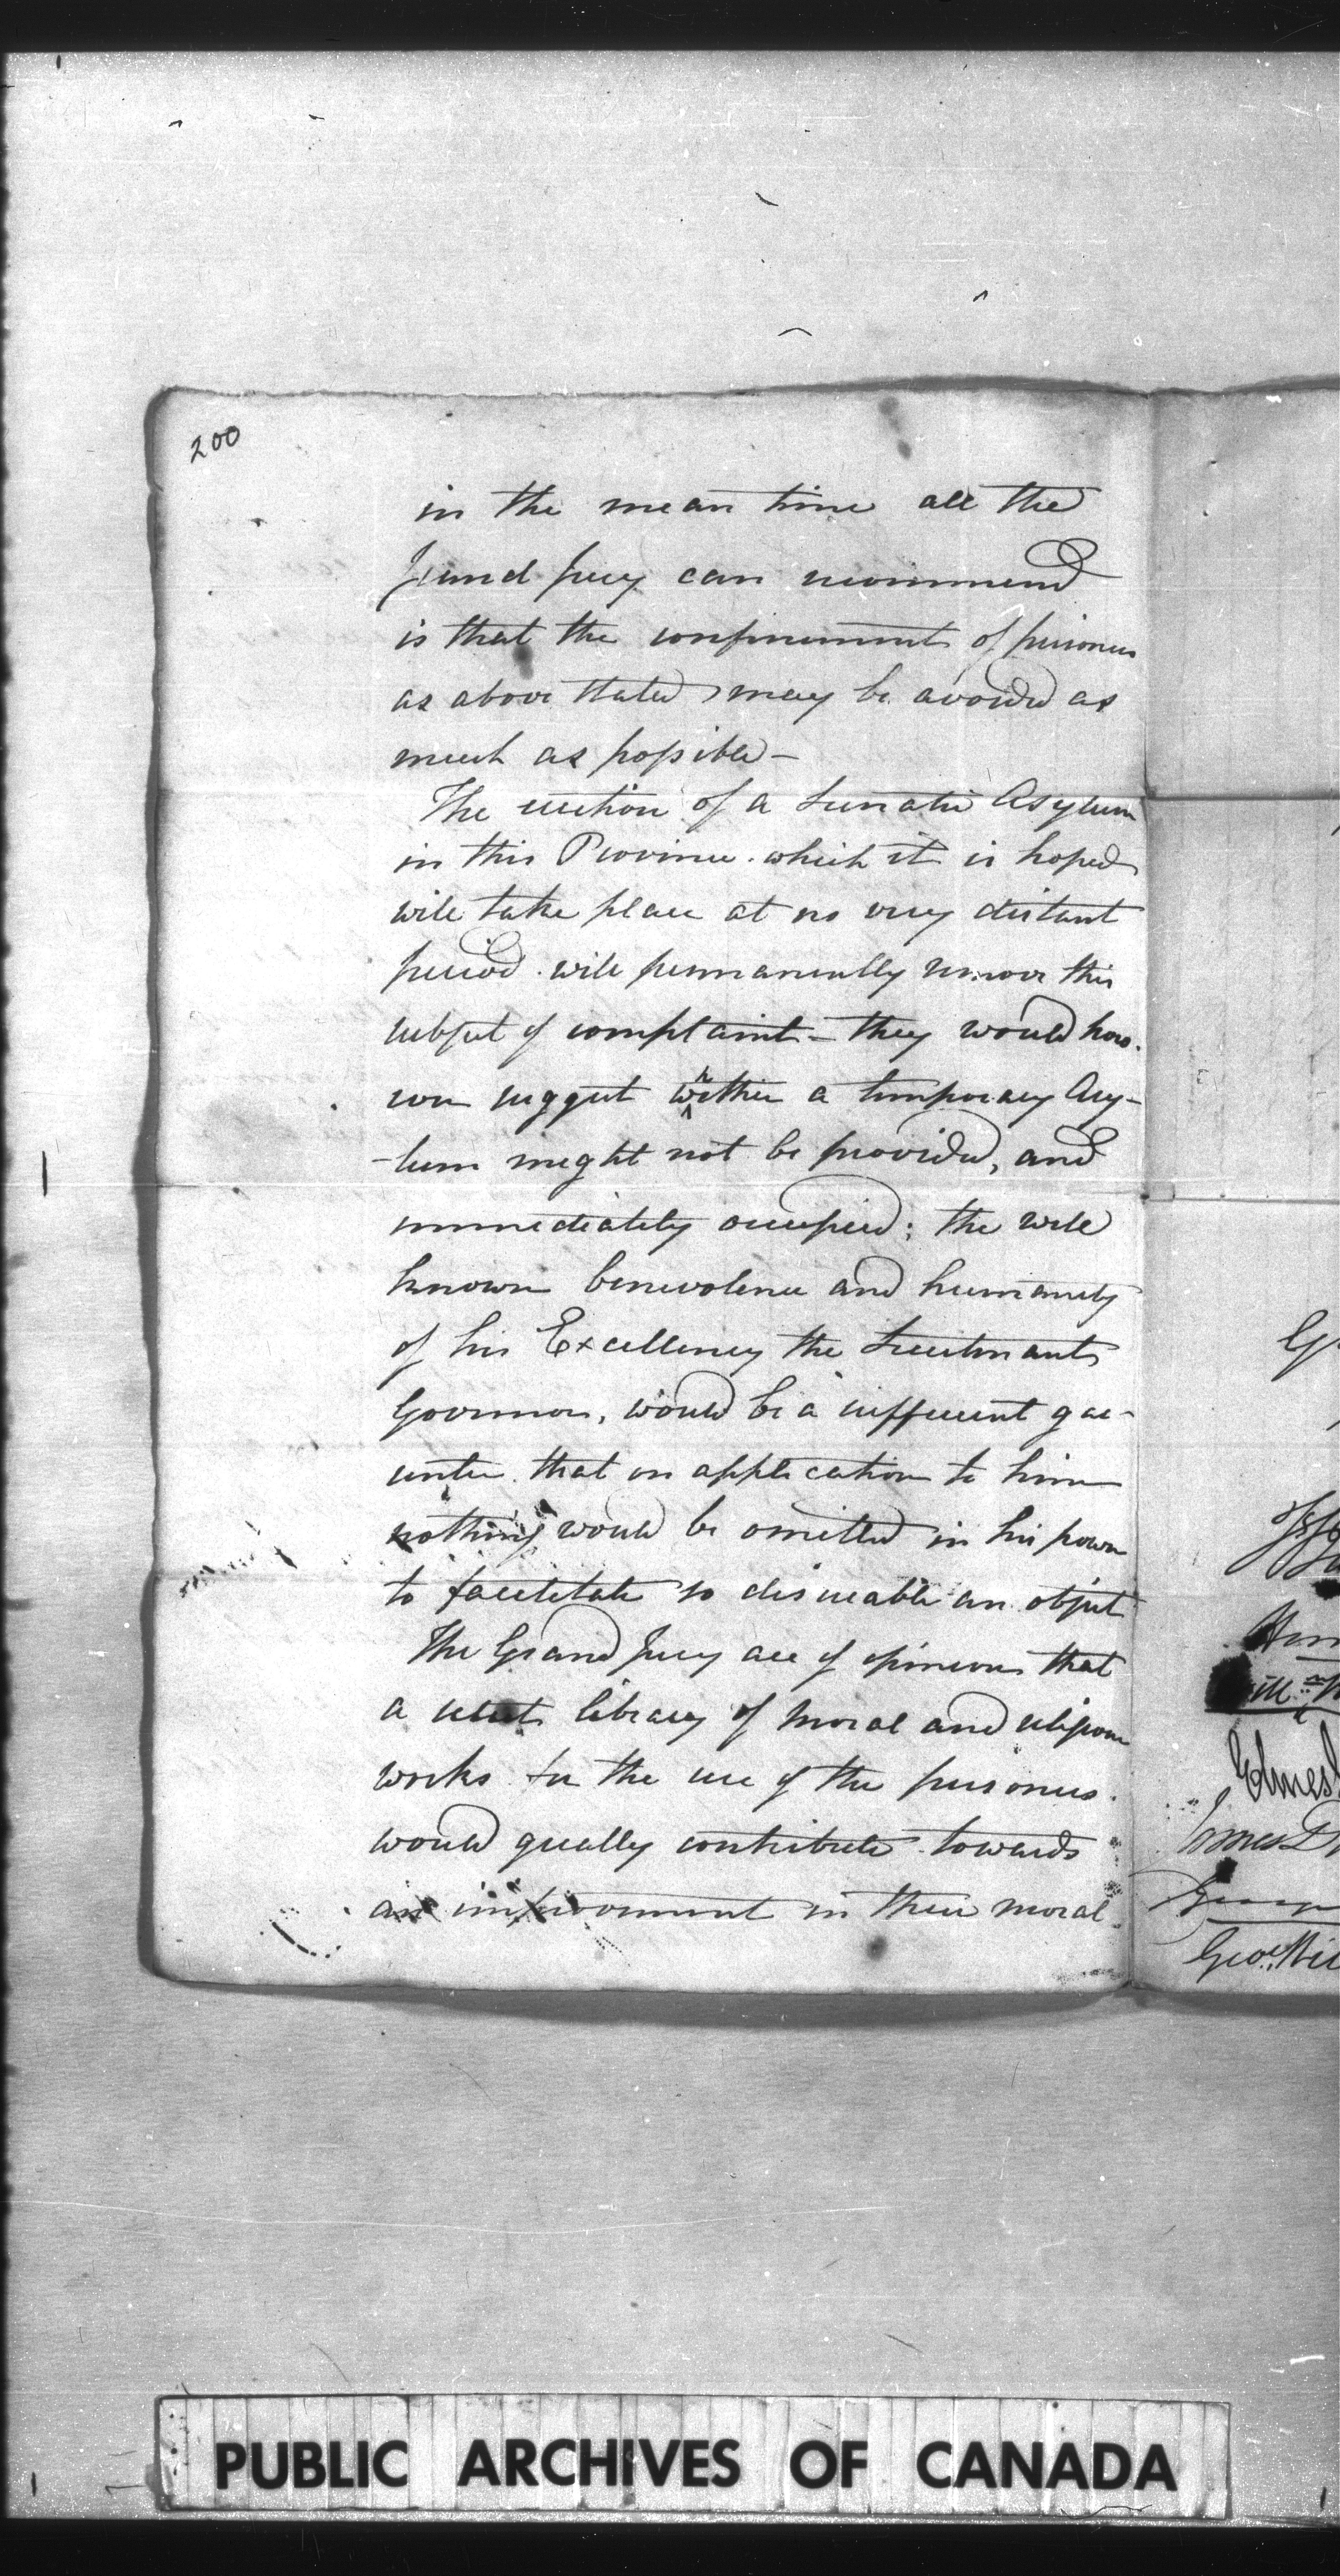 200
in the mean time all the
Grand Jury can recommend
is that the confinement of prisoners
as above stated may be avoided as
much as possible —
The erection of a Lunatic Asylum
in this Province which it is hoped
will take place at no very distant
period will permanently remove this
subject of complaint — they would how-
ever suggest whether a temporary Asy-
-lum might not be provided, and
immediately occupied; the well
known benevolence and humanity
of his Excellency the Lieutenant
Governor, would be a sufficient gar-
antee that on application to him
nothing would be omitted in his power
to facilitate so desireable an object
The Grand Jury are of opinion that
a select library of moral and religious
works for the use of the prisoners
would greatly contribute towards
an improvement in their moral
James
George
Geo.
PUBLIC ARCHIVES OF CANADA